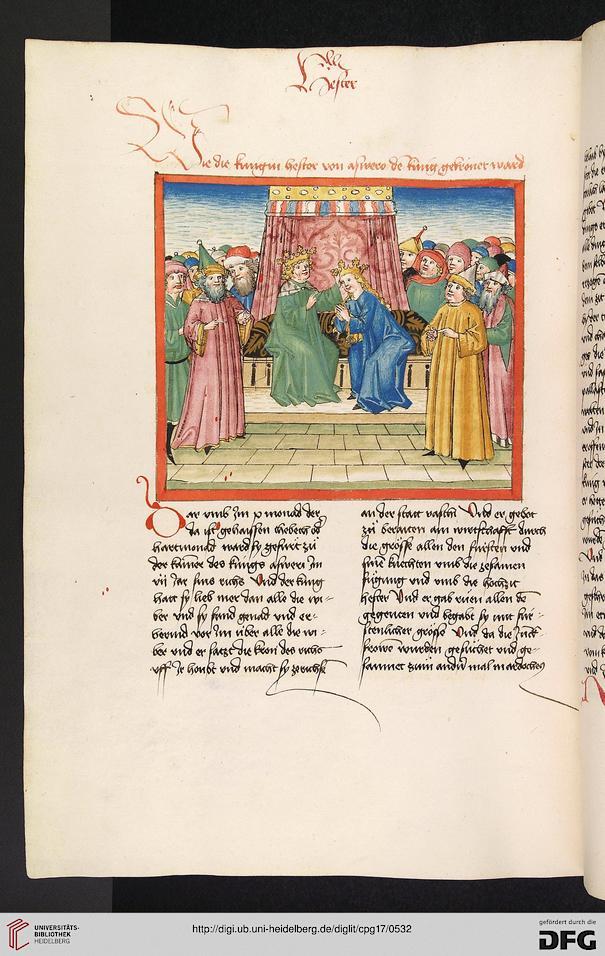 Hester
Wie die küngin hester von aswero de küng gekrönet ward
Dar vmb jm x monad der
da ist gehaissen thebeth od
hartmonad ward sy gefürt zü
der kamer des küngs asweri jn
vii jar sins richs Vnd der küng
hatt sy lieb mer dan alle die wi-
ber vnd sy fand genad vnd er-
bermd vor jm über alle die wi-
ber vnd er saczt die kron des richs
vff jr houbt vnd macht sy
an der statt vasthi Vnd er gebot
zü beraiten ain wirtschafft durch
die grösse allen den fürsten vnd
sine knechten vmb die zesamen
fügung vnd vmb die hochzit
hester Vnd er gab rüen allen de
gegenten vnd begabt sy mit für-
stenlicher grösse Vnd da die junk
frowe wurden gesüchet vnd ge-
samnet zum andern mal mardocheus
UNIVERSITÄTS-
BIBLIOTHEK
HEIDELBERG
http://digi.ub.uni-heidelberg.de/diglit/cpg17/0532
gefördert durch die
DFG